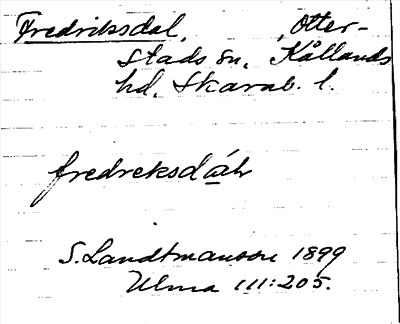 Fredriksdal, Otter-
Stads sn, Kållands
hd, Skarab. l.
fredreksdáh
S. Landtmanson 1899
Ulma 111:205.